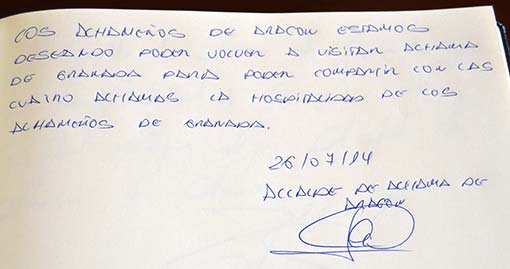 LOS ALHAMEÑOS DE ARAGON ESTAMOS
DESEANDO PODER VOLVER A VISITAR ALHAMA
DE GRANADA PARA PODER COMPARTIR CON LAS
CUATRO ALHAMAS LA HOSPITALIDAD DE LOS
ALHAMEÑOS DE GRANADA.
26/07/14
ALCALDE DE ALHAMA DE
ARAGON